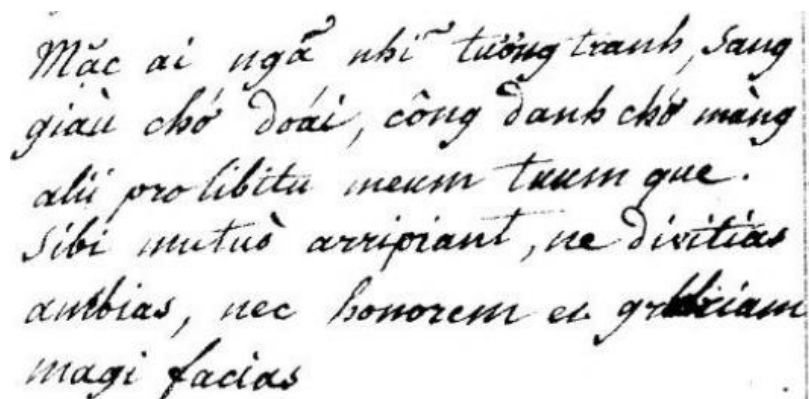 Mặc ai ngã nhĩ tương tranh, sang
giàu chớ đoái, công danh chớ màng
alii pro libitu meum tuum que.
sibi mutuò arripiant, ne divitias
ambias, nec honorem et gloriam
magi facias